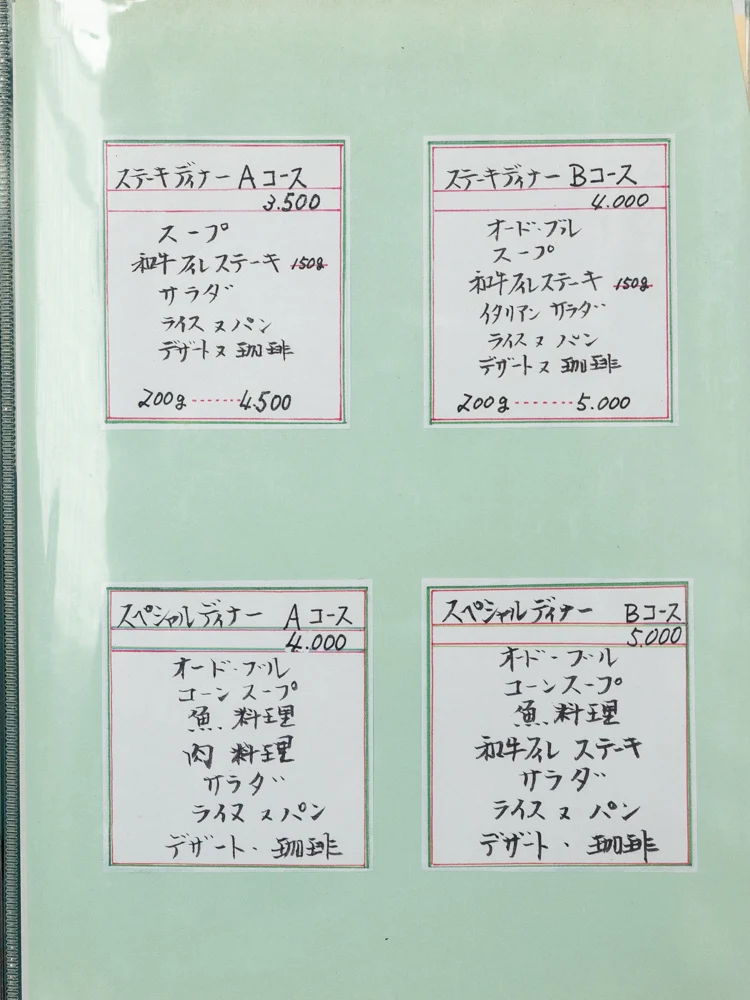 ステーキディナー Aコース
3.500
スープ
和牛フィレステーキ 150g
サラダ
ライス又パン
デザート又珈琲
200g ······ 4.500
ステーキディナー Bコース
4.000
オードーブル
スープ
和牛フィレステーキ 150g
イタリアンサラダ
ライス又パン
デザート又珈琲
200g ······· 5.000
スペシャルディナー Aコース
4.000
オードーブル
コーンスープ
魚料理
肉料理
サラダ
ライス又パン
デザート・珈琲
スペシャルディナー Bコース
5.000
オードーブル
コーンスープ
魚料理
和牛フィレステーキ
サラダ
ライス又パン
デザート・珈琲